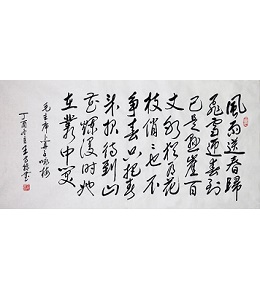 風雨送春歸
飛雪迎春到
已是懸崖百
丈冰猶有花
枝俏々也不
爭春只把春
來报待到山
花爛漫時她
在叢中笑
毛主席卜算子咏梅
丁亥